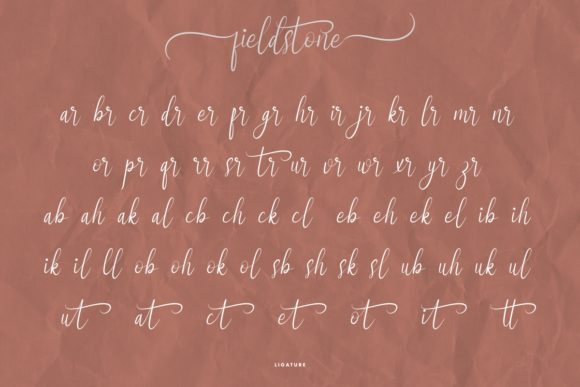 fieldstone
ar br cr dr er fr gr hr ir jr kr lr mr nr
or pr qr rr sr tr ur vr wr xr yr zr
ab ah ak al cb ch ck cl eb eh ek el ib ih
ik il ll ob oh ok ol sb sh sk sl ub uh uk ul
ut at ct et ot it tt
LIGATURE